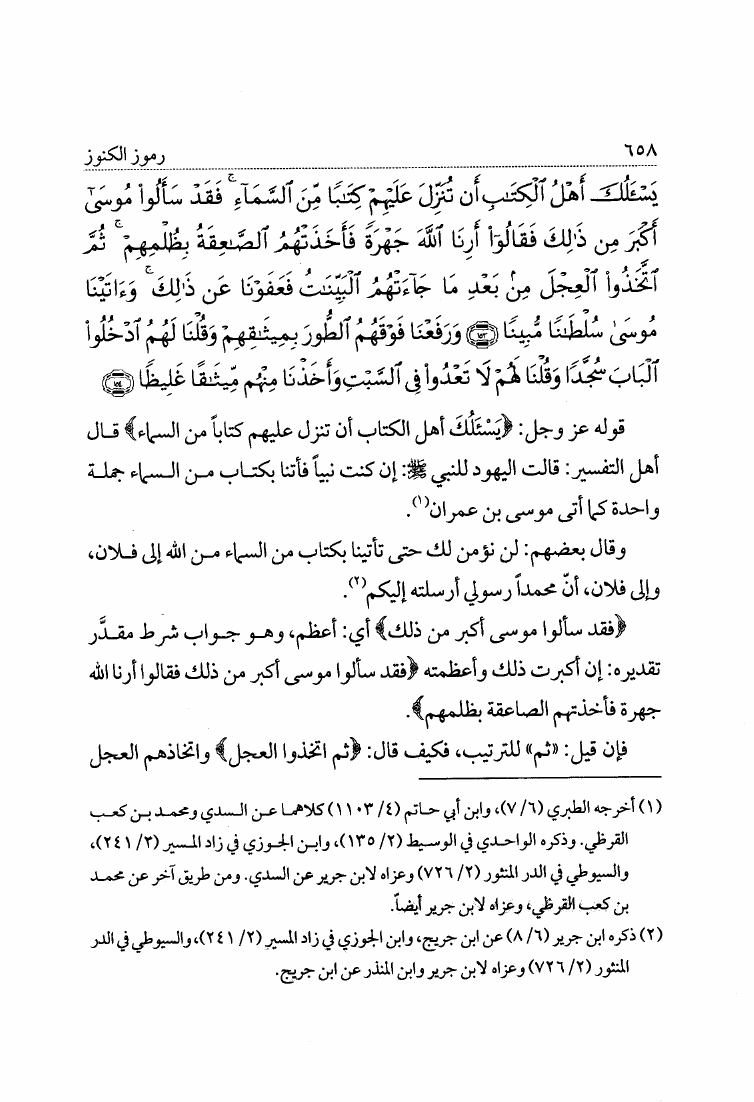 ٦٥٨ رموز الكنوز
يَسْـَٔلُكَ أَهْلُ ٱلْكِتَٰبِ أَن تُنَزِّلَ عَلَيْهِمْ كِتَٰبًا مِّنَ ٱلسَّمَآءِ ۚ فَقَدْ سَأَلُوا۟ مُوسَىٰٓ
أَكْبَرَ مِن ذَٰلِكَ فَقَالُوٓا۟ أَرِنَا ٱللَّهَ جَهْرَةً فَأَخَذَتْهُمُ ٱلصَّٰعِقَةُ بِظُلْمِهِمْ ۚ ثُمَّ
ٱتَّخَذُوا۟ ٱلْعِجْلَ مِنۢ بَعْدِ مَا جَآءَتْهُمُ ٱلْبَيِّنَٰتُ فَعَفَوْنَا عَن ذَٰلِكَ ۚ وَءَاتَيْنَا
مُوسَىٰ سُلْطَٰنًا مُّبِينًا ﴿١٥٣﴾ وَرَفَعْنَا فَوْقَهُمُ ٱلطُّورَ بِمِيثَٰقِهِمْ وَقُلْنَا لَهُمُ ٱدْخُلُوا۟
ٱلْبَابَ سُجَّدًا وَقُلْنَا لَهُمْ لَا تَعْدُوا۟ فِى ٱلسَّبْتِ وَأَخَذْنَا مِنْهُم مِّيثَٰقًا غَلِيظًا ﴿١٥٤﴾
قوله عز وجل: ﴿يَسْئَلُكَ أهل الكتاب أن تنزل عليهم كتاباً من السماء﴾ قال
أهل التفسير: قالت اليهود للنبي ﷺ: إن كنت نبياً فأتنا بكتاب من السماء جملة
واحدة كما أتى موسى بن عمران(١).
وقال بعضهم: لن نؤمن لك حتى تأتينا بكتاب من السماء من الله إلى فلان،
وإلى فلان، أنّ محمداً رسولي أرسلته إليكم(٢).
﴿فقد سألوا موسى أكبر من ذلك﴾ أي: أعظم، وهو جواب شرط مقدَّر
تقديره: إن أكبرت ذلك وأعظمته ﴿فقد سألوا موسى أكبر من ذلك فقالوا أرنا الله
جهرة فأخذتهم الصاعقة بظلمهم﴾.
فإن قيل: «ثم» للترتيب، فكيف قال: ﴿ثم اتخذوا العجل﴾ واتخاذهم العجل
(١) أخرجه الطبري (٦/ ٧)، وابن أبي حاتم (٤/ ١١٠٣) كلاهما عن السدي ومحمد بن كعب
القرظي. وذكره الواحدي في الوسيط (٢/ ١٣٥)، وابن الجوزي في زاد المسير (٢/ ٢٤١)،
والسيوطي في الدر المنثور (٢/ ٧٢٦) وعزاه لابن جرير عن السدي. ومن طريق آخر عن محمد
بن كعب القرظي، وعزاه لابن جرير أيضاً.
(٢) ذكره ابن جرير (٦/ ٨) عن ابن جريج، وابن الجوزي في زاد المسير (٢/ ٢٤١)، والسيوطي في الدر
المنثور (٢/ ٧٢٦) وعزاه لابن جرير وابن المنذر عن ابن جريج.